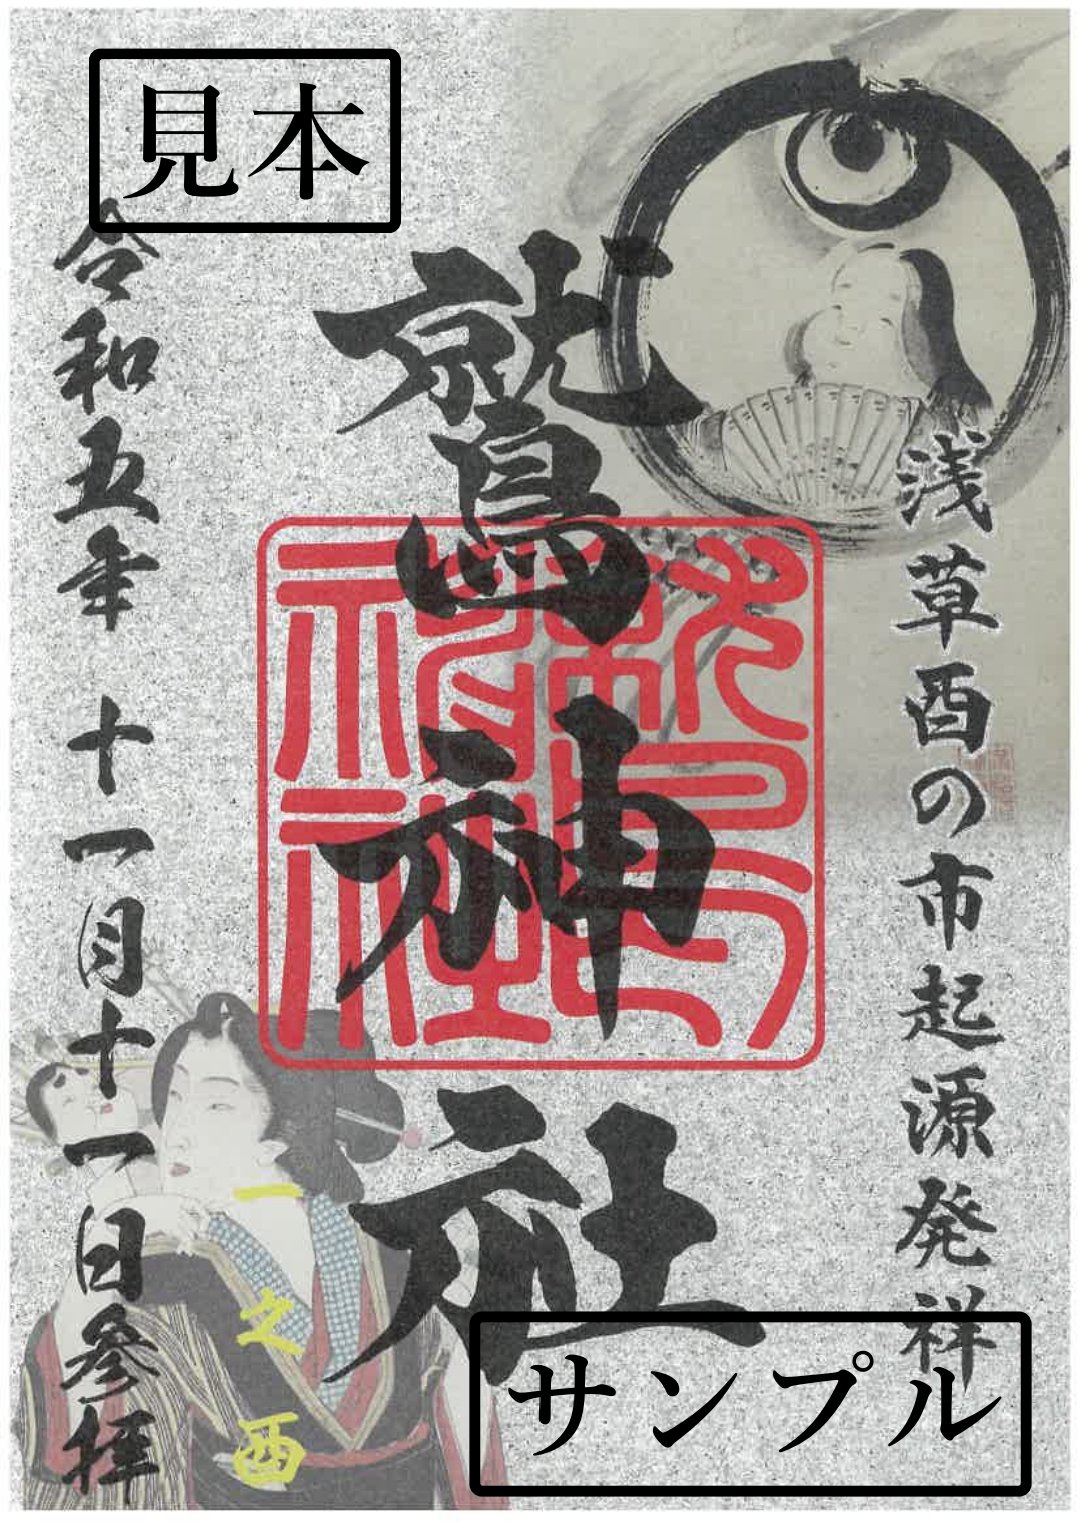 見本
浅草酉の市起源発祥
鷲神社
令和五年 十一月十一日参拝
一之酉
サンプル